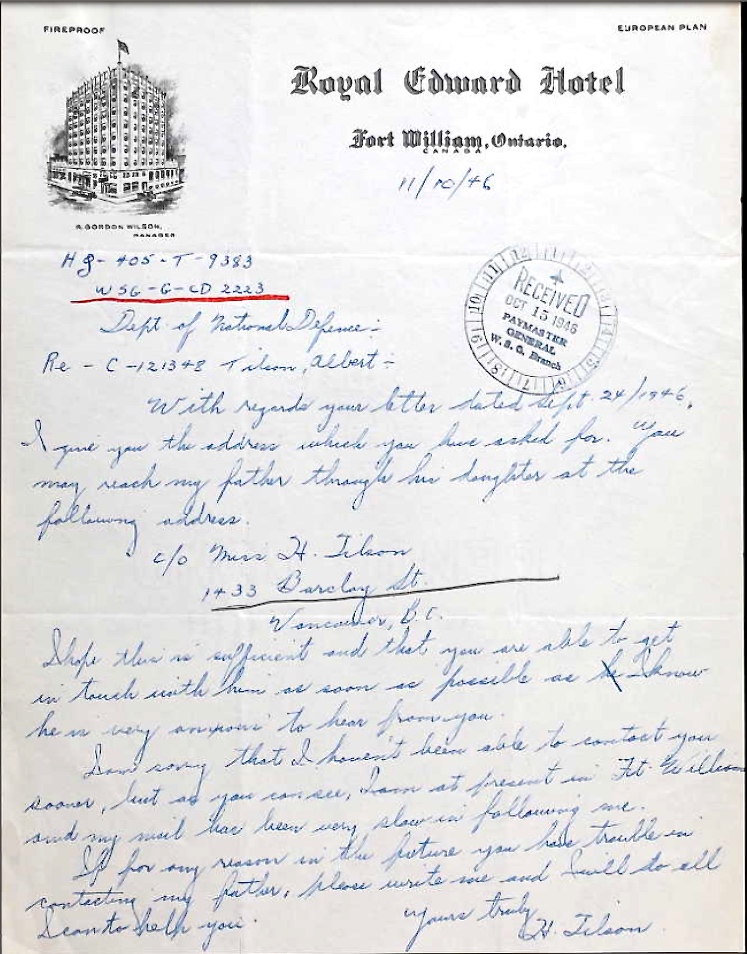 FIREPROOF
EUROPEAN PLAN
Royal Edward Hotel
Fort William, Ontario.
CANADA
11/10/46
R. GORDON WILSON,
MANAGER
HQ - 405 - T - 9383
WSG - G - CD 2223
RECEIVED
OCT 15 1946
PAYMASTER
GENERAL
W. S. G. Branch
Dept of National Defence:-
Re - C - 121348 Tilson, Albert :-
With regards your letter dated Sept. 24/1946,
I give you the address which you have asked for. You
may reach my father through his daughter at the
following address.
c/o Miss H. Tilson
1433 Barclay St.
Vancouver, B.C.
I hope this is sufficient and that you are able to get
in touch with him as soon as possible as I know
he is very anxious to hear from you.
I am sorry that I haven't been able to contact you
sooner, but as you can see, I am at present in Ft. William
and my mail has been very slow in following me.
If for any reason in the future you have trouble in
contacting my father, please write me and I will do all
I can to help you.
Yours truly
H. Tilson.